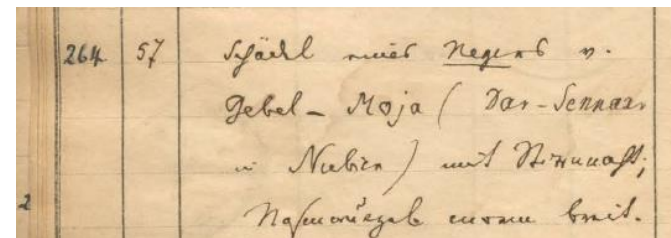 264 57 Schädel eines Negers v.
Gebel-Moja (Dar-Sennaar
in Nubien) mit Stirnnaht;
Nasenwurzel enorm breit.
2